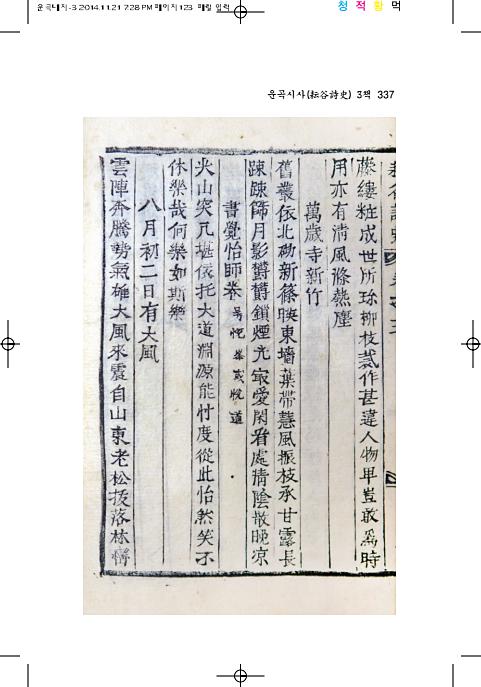 운곡대치-3 2014.11.21 7:28 PM 페이지123 매킬 입력
청 적 황 먹
운곡시사(耘谷詩史) 3책 337
藤縷粧成世所珎柳枝裁作甚違人物早豈敢爲時
用亦有淸風滌熱塵
萬歲寺新竹
舊叢依北砌新篠映東墻葉帶慧風振枝承甘露長
踈踈篩月影欝欝鎖煙光寂愛閑看處淸陰散晩凉
書覺怡師卷
尖山突兀堪依托大道淵源能忖度從此怡然笑不
休樂哉何樂如斯樂
八月初二日有大風
雲陣奔騰勢氣雄大風來震自山東老松拔落林